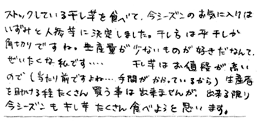 ストックしている干し芋を食べて、今シーズンのお気に入りは
いずみと人参芋に決定しました。干し方は平干しか
角切りですね。生産量が少ないものが好きだなんて、
ぜいたくな私です…… 干し芋はお値段が高い
ので(当たり前ですよね…手間がかかっているから)生産者
を助ける程たくさん買う事は出来ませんが、出来る限り
今シーズンも干し芋たくさん食べようと思います。